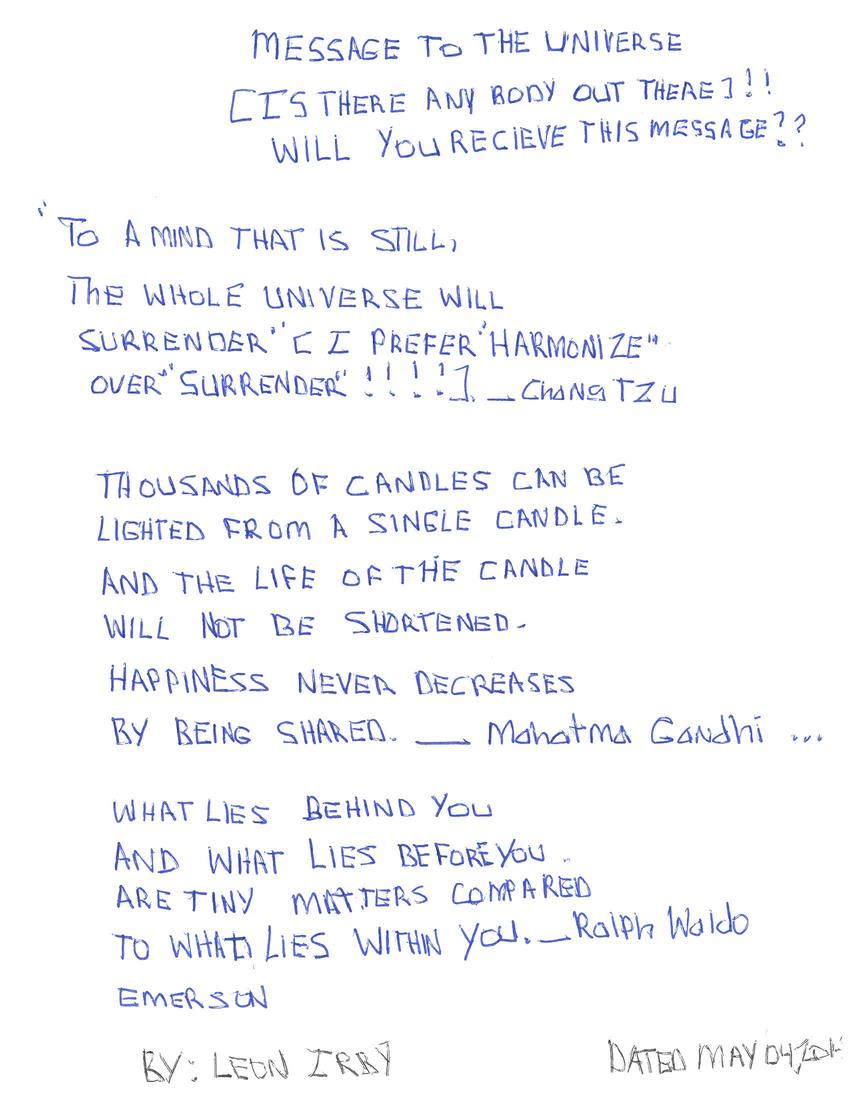 MESSAGE TO THE UNIVERSE
[IS THERE ANY BODY OUT THERE]!!
WILL YOU RECIEVE THIS MESSAGE??
"TO A MIND THAT IS STILL,
THE WHOLE UNIVERSE WILL
SURRENDER" [I PREFER "HARMONIZE"
OVER "SURRENDER" !!!!] — CHANG TZU
THOUSANDS OF CANDLES CAN BE
LIGHTED FROM A SINGLE CANDLE.
AND THE LIFE OF THE CANDLE
WILL NOT BE SHORTENED.
HAPPINESS NEVER DECREASES
BY BEING SHARED. — Mahatma Gandhi ...
WHAT LIES BEHIND YOU
AND WHAT LIES BEFORE YOU
ARE TINY MATTERS COMPARED
TO WHAT LIES WITHIN YOU. — Ralph Waldo
EMERSON
BY: LEON IRBY
DATED MAY 04,